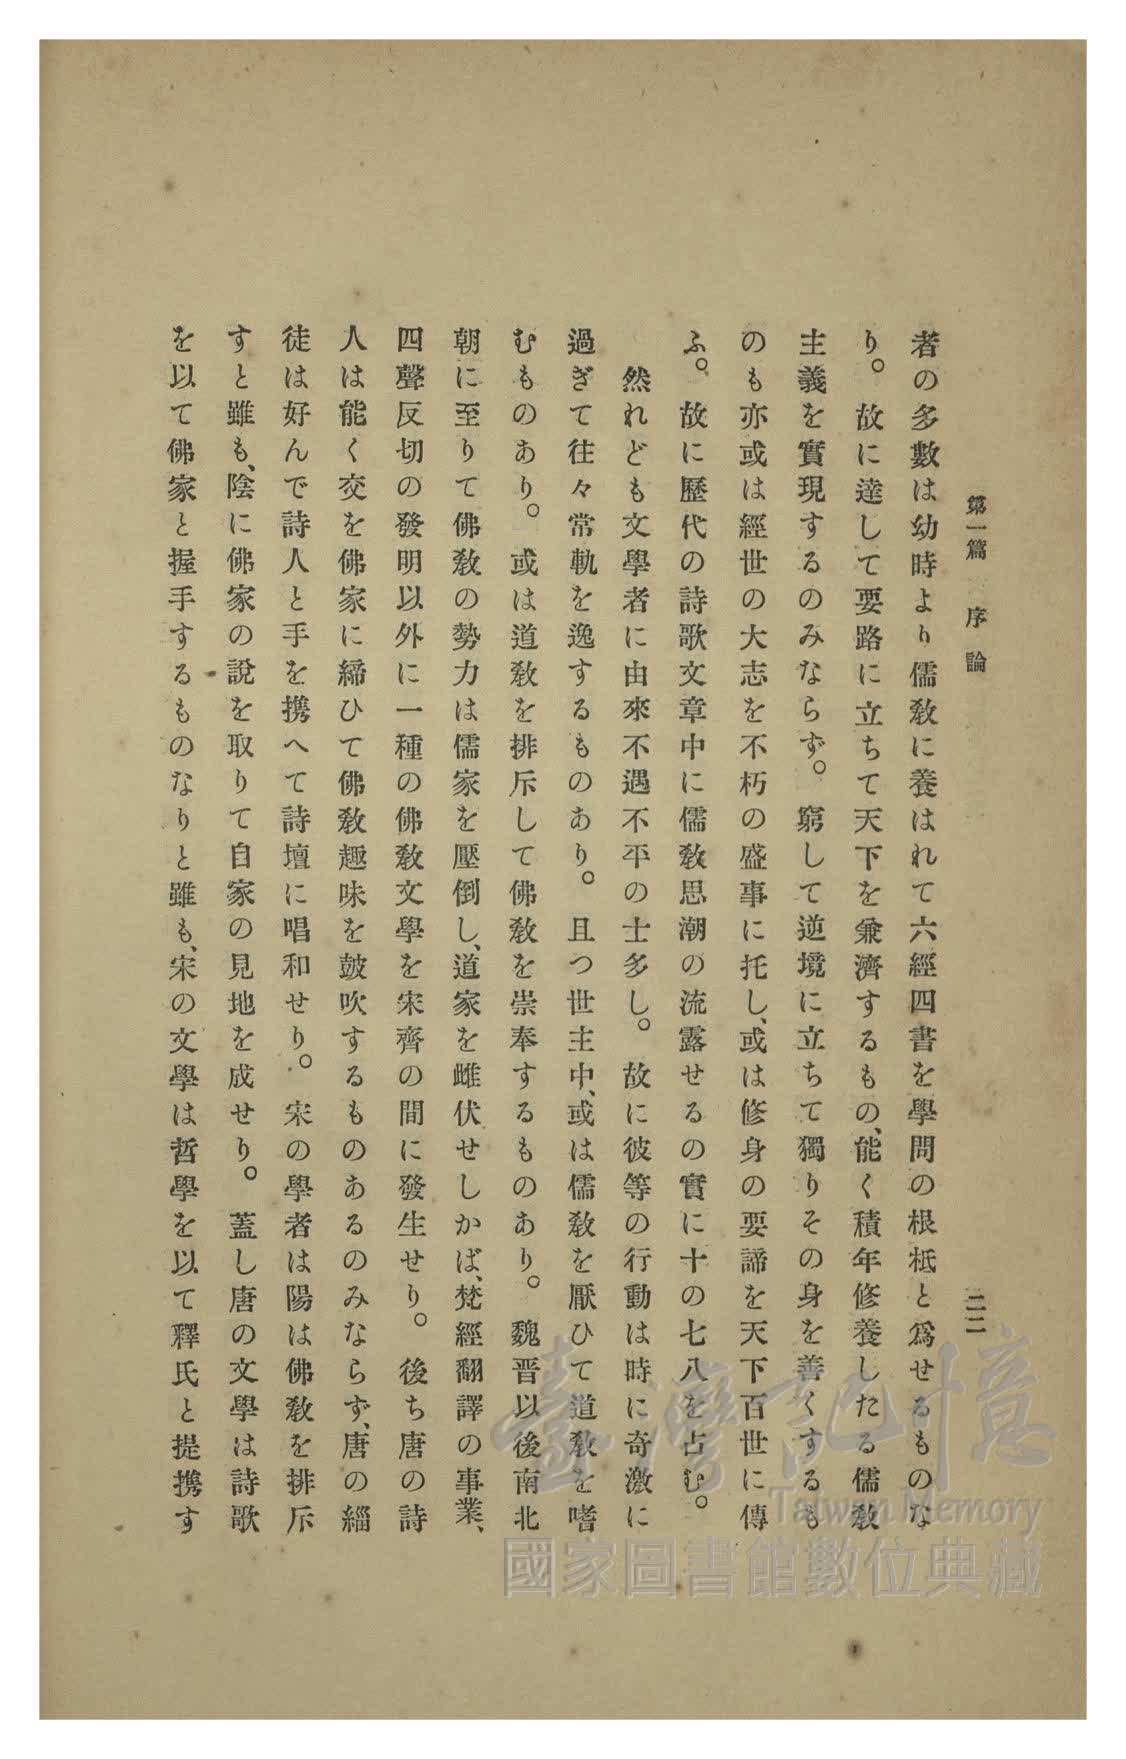 第一篇 序論 二二
者の多數は幼時より儒教に養はれて六經四書を學問の根柢と爲せるものな
り。故に達して要路に立ちて天下を兼濟するもの、能く積年修養したる儒教
主義を實現するのみならず。窮して逆境に立ちて獨りその身を善くするも
のも亦或は經世の大志を不朽の盛事に托し、或は修身の要諦を天下百世に傳
ふ。故に歷代の詩歌文章中に儒教思潮の流露せるの實に十の七八を占む。
然れども文學者に由來不遇不平の士多し。故に彼等の行動は時に奇激に
過ぎて往々常軌を逸するものあり。且つ世主中、或は儒教を厭ひて道教を嗜
むものあり。或は道教を排斥して佛教を崇奉するものあり。魏晋以後南北
朝に至りて佛教の勢力は儒家を壓倒し、道家を雌伏せしかば、梵經翻譯の事業、
四聲反切の發明以外に一種の佛教文學を宋齊の間に發生せり。後ち唐の詩
人は能く交を佛家に締ひて佛教趣味を鼓吹するものあるのみならず、唐の緇
徒は好んで詩人と手を携へて詩壇に唱和せり。宋の學者は陽は佛教を排斥
すと雖も、陰に佛家の說を取りて自家の見地を成せり。蓋し唐の文學は詩歌
を以て佛家と握手するものなりと雖も、宋の文學は哲學を以て釋氏と提携す
臺灣記憶
Taiwan Memory
國家圖書館數位典藏